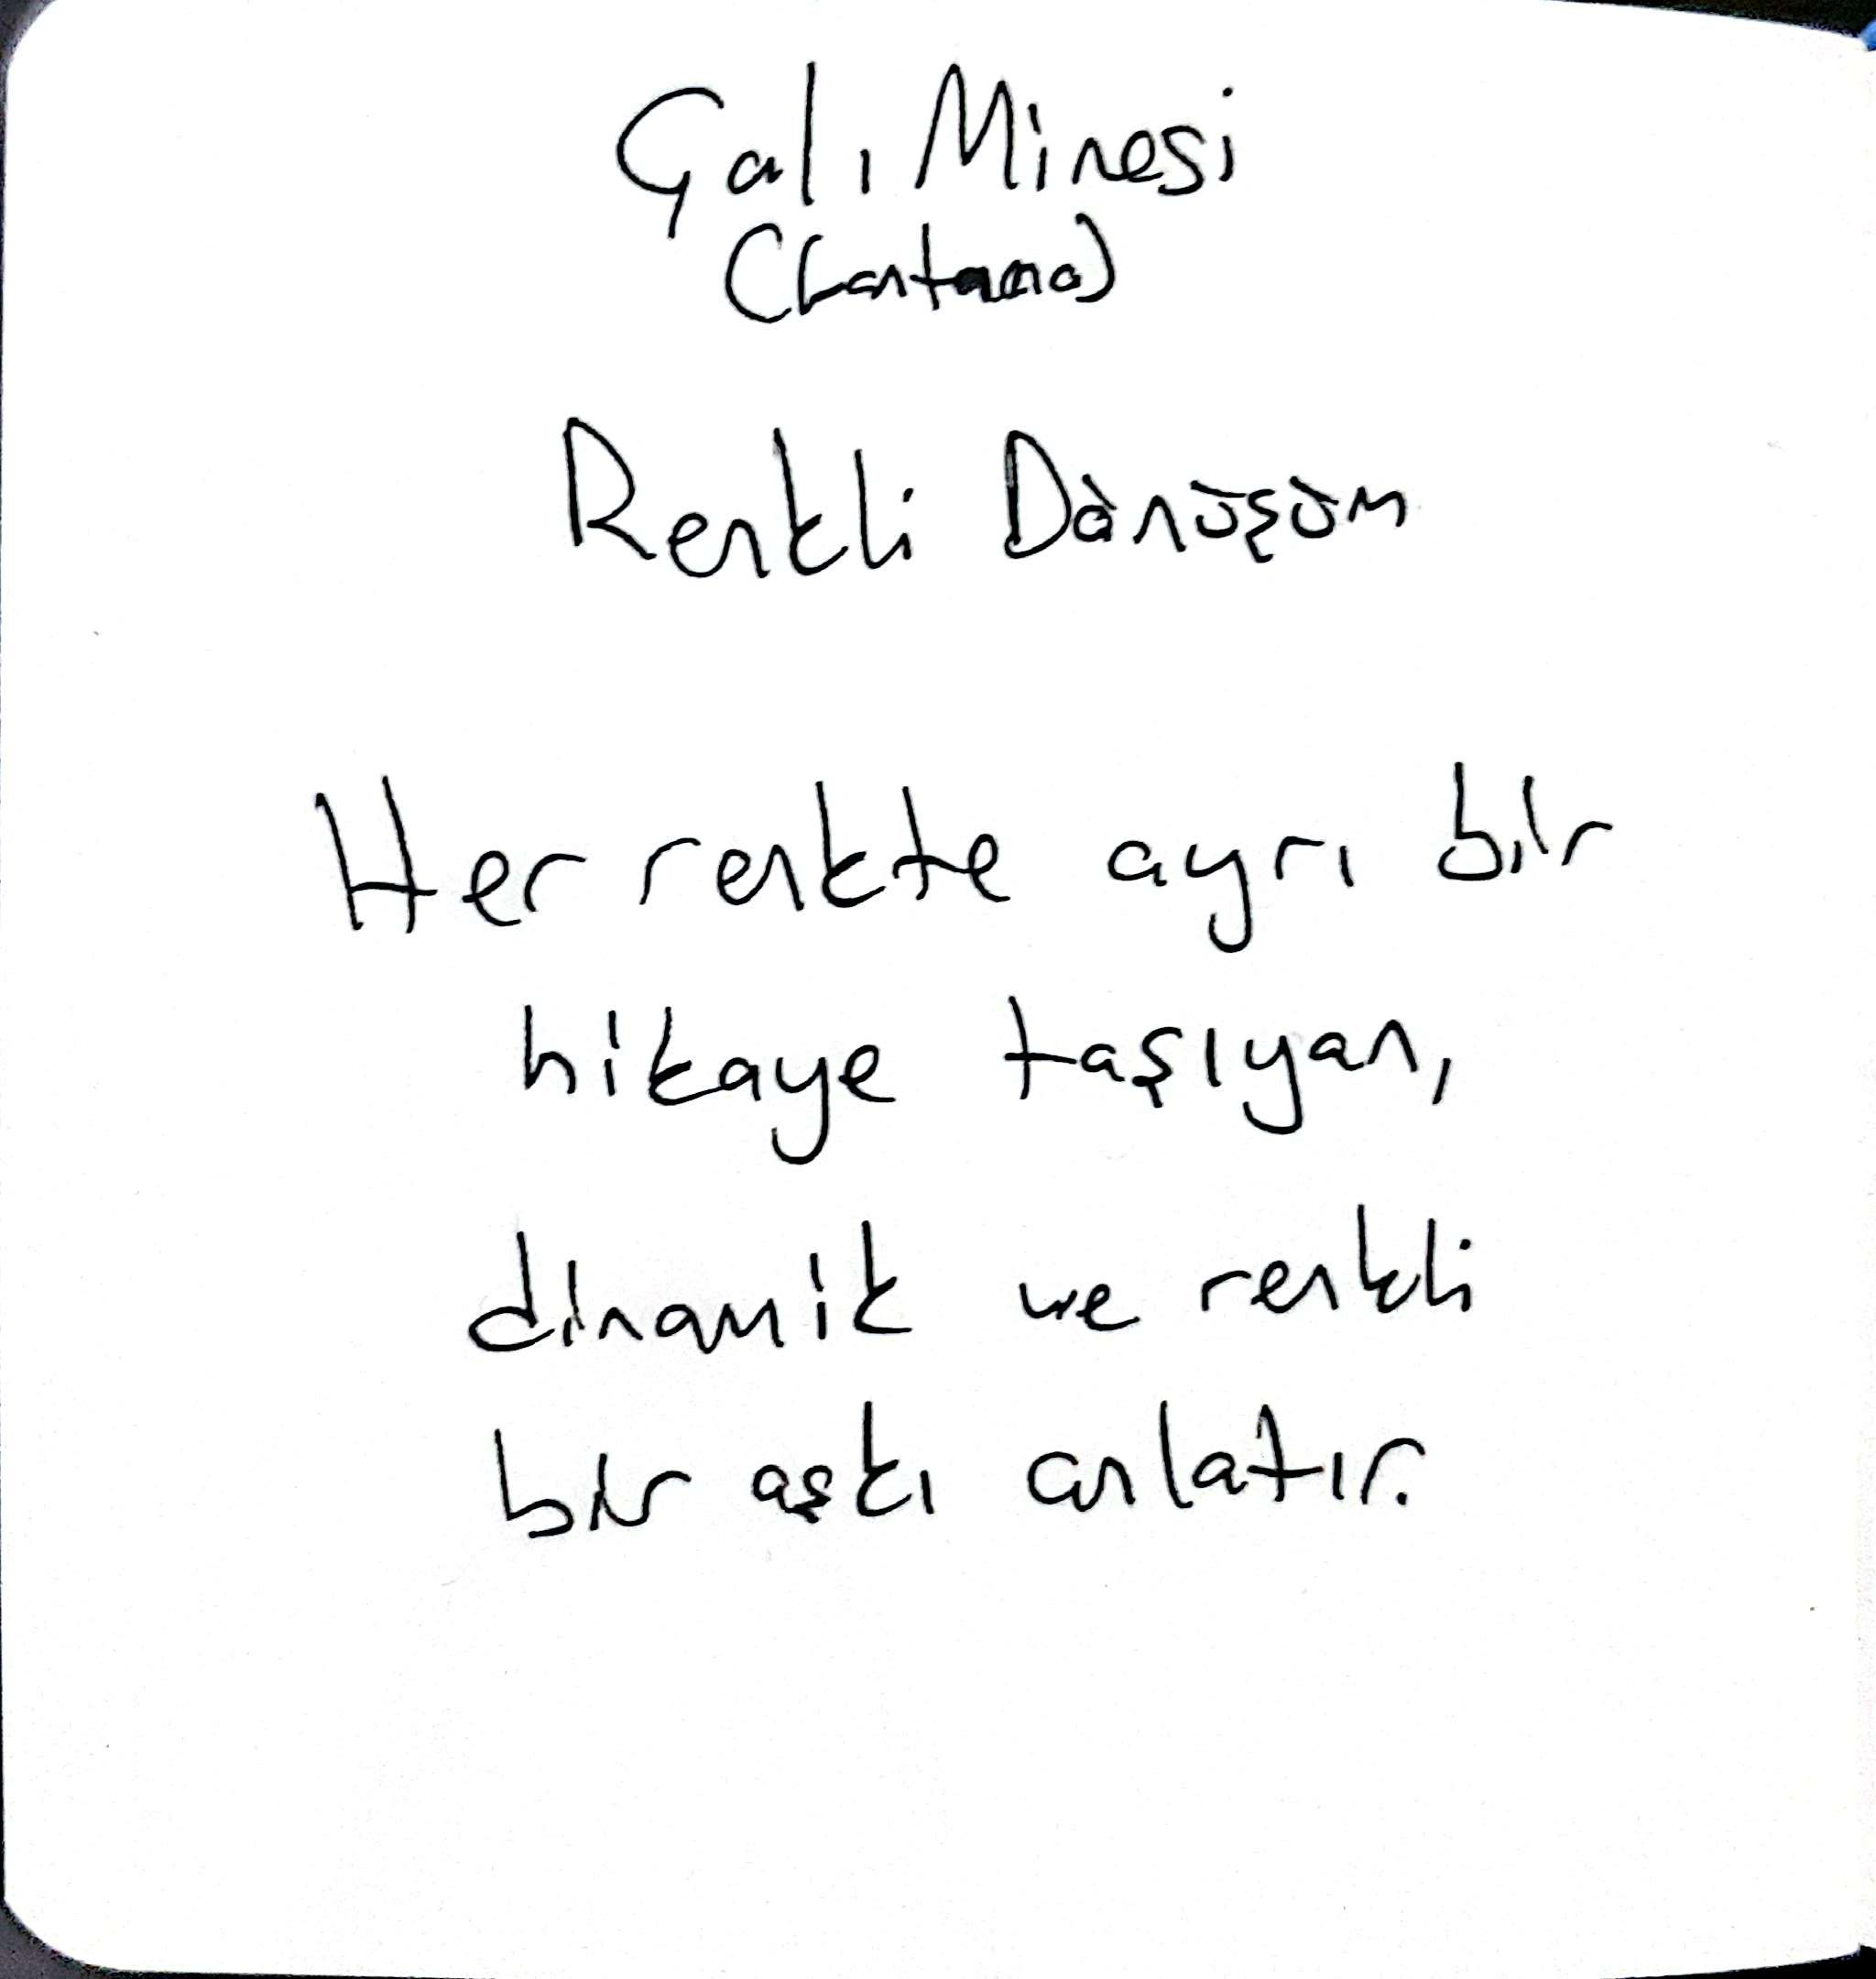 Çalı Minesi
(Lantana)
Renkli Dönüşüm
Her renkte ayrı bir
hikaye taşıyan,
dinamik ve renkli
bir aşkı anlatır.